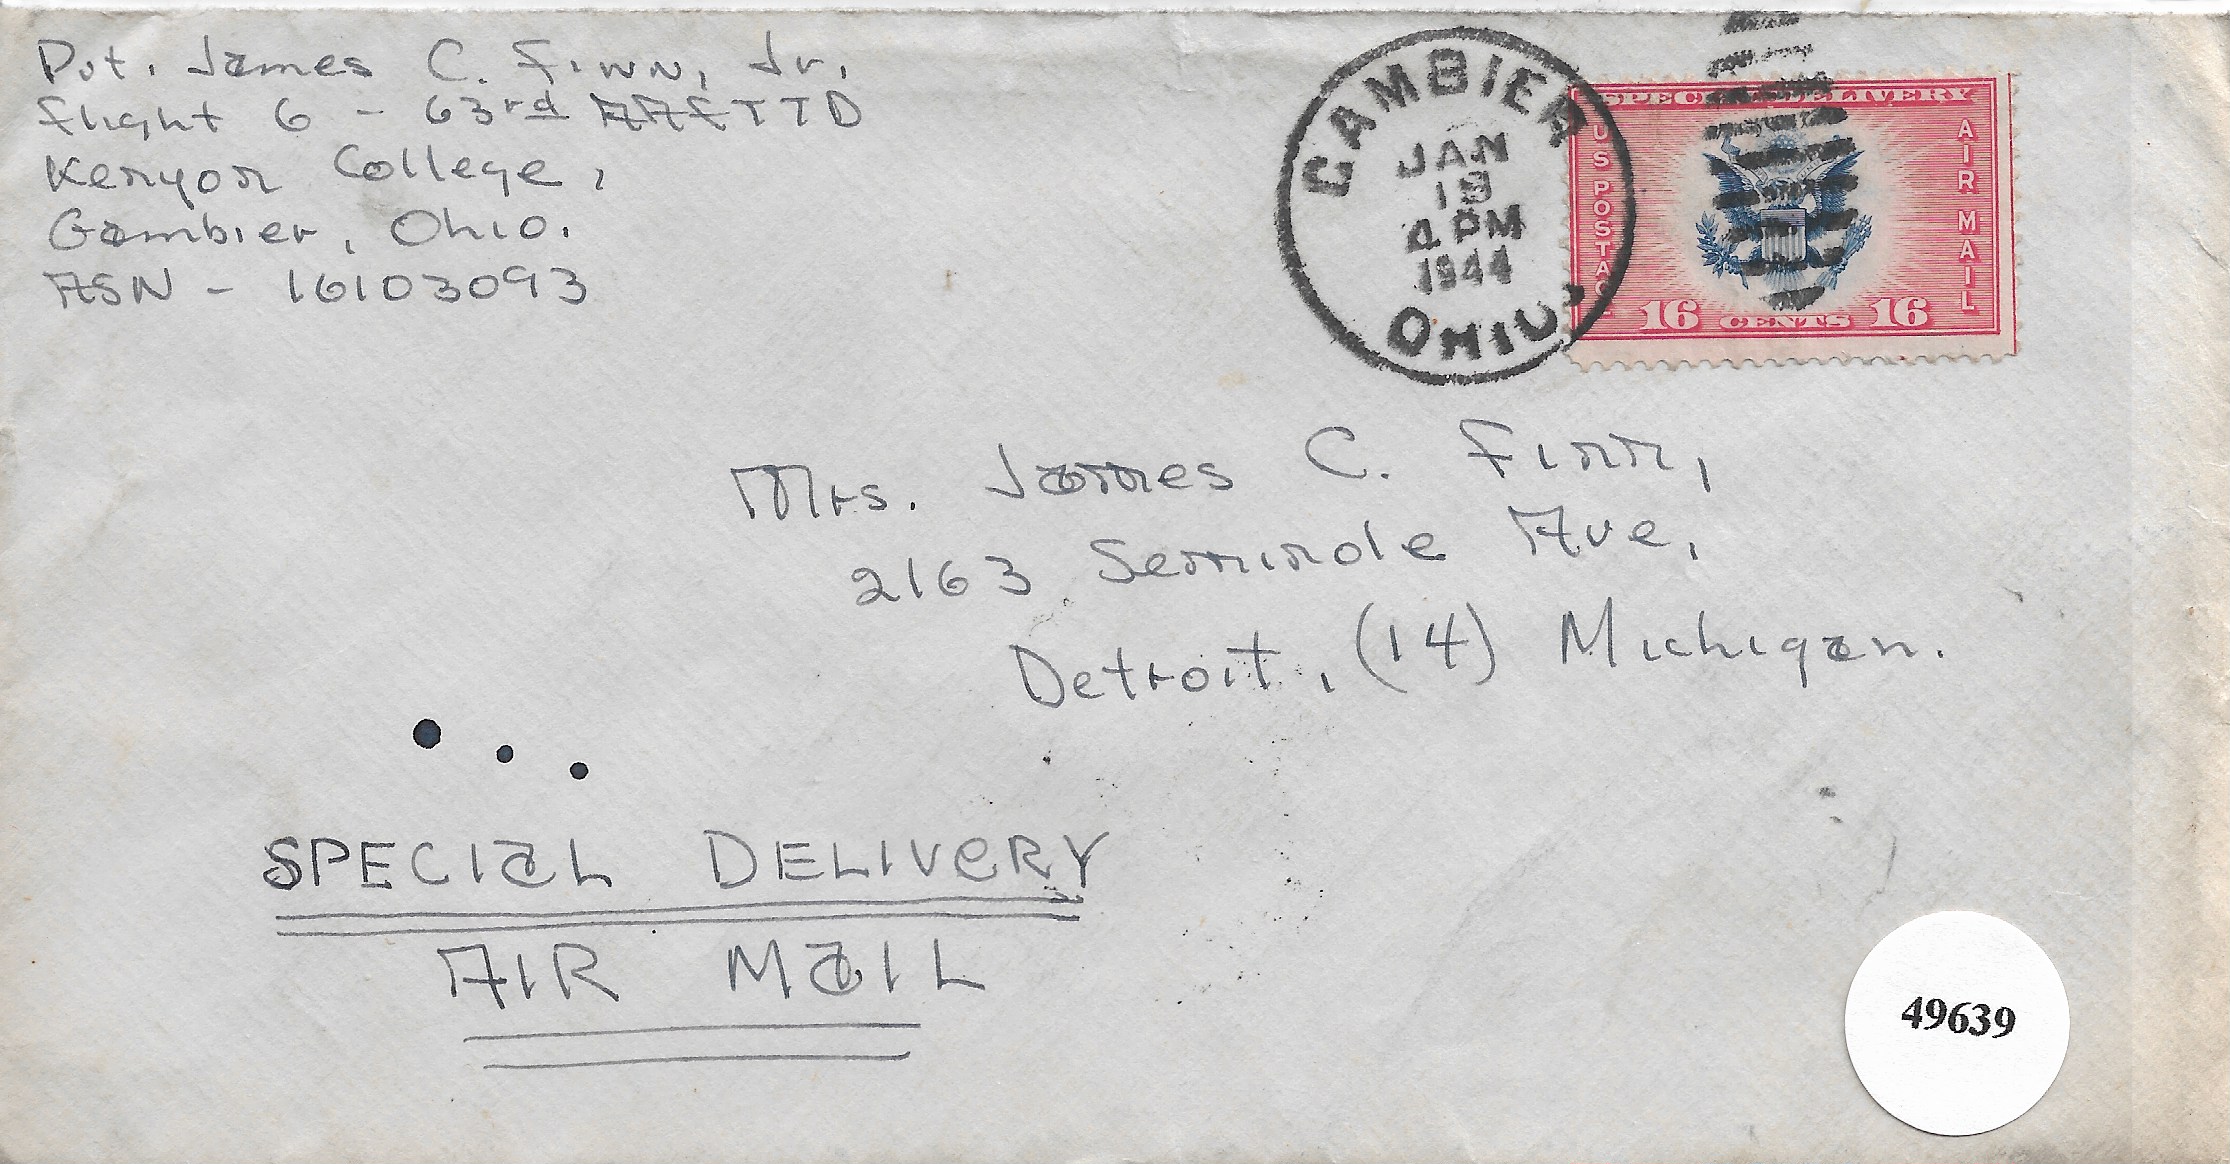 Pvt. James C. Finn, Jr.
Flight 6 - 63rd AAFTTD
Kenyon College,
Gambier, Ohio.
ASN - 16103093
GAMBIER
JAN
18
4 PM
1944
OHIO
SPECIAL DELIVERY
US POSTAGE
AIR MAIL
16 CENTS 16
Mrs. James C. Finn,
2163 Seminole Ave,
Detroit, (14) Michigan.
SPECIaL DELIVeRY
AIR MaIL
49639